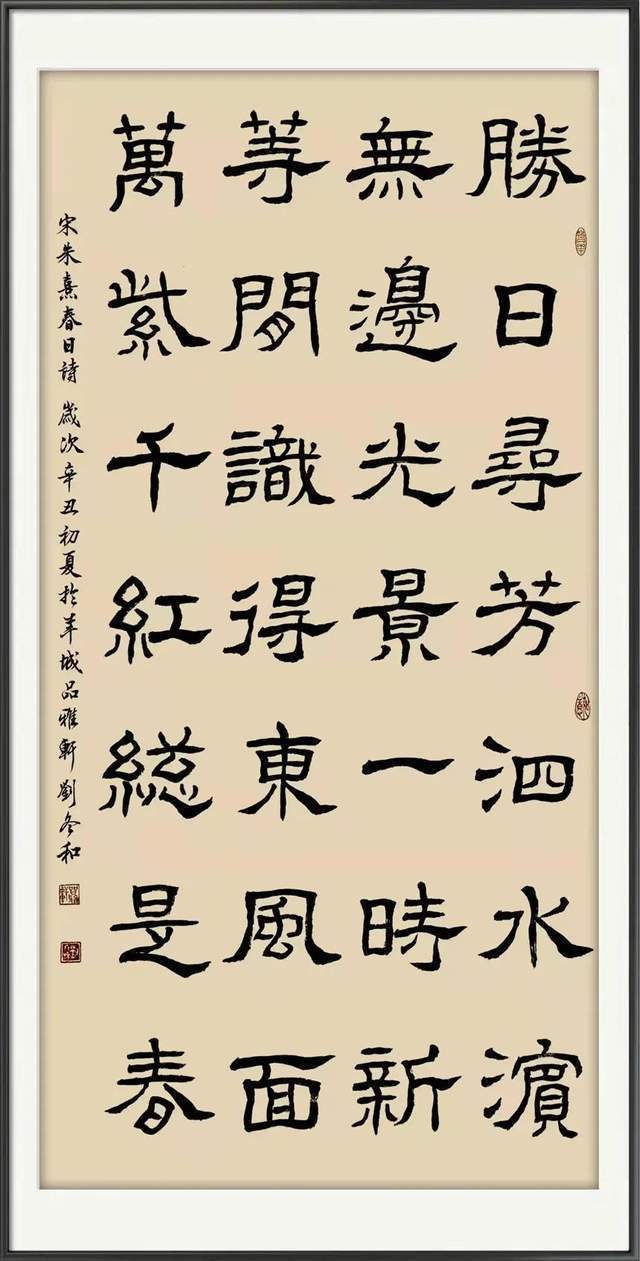 勝日尋芳泗水濱
無邊光景一時新
等閒識得東風面
萬紫千紅総是春
宋朱熹春日詩 歲次辛丑初夏於羊城品雅軒劉冬和